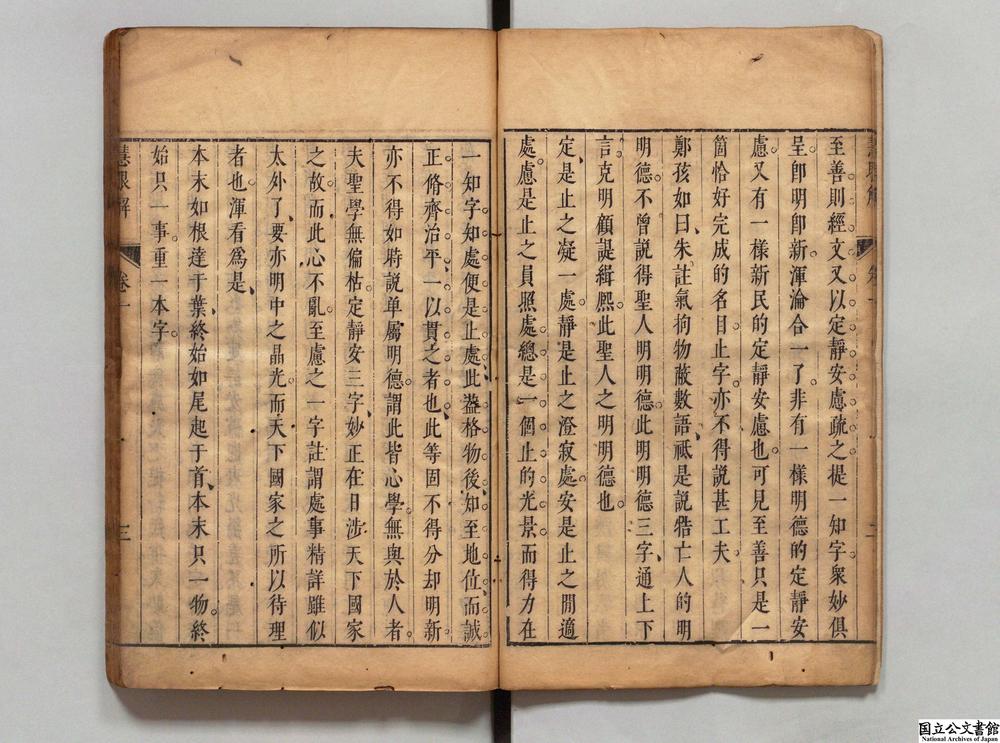 至善則經文又以定靜安慮疏之提一知字衆妙俱
呈卽明卽新渾淪合一了非有一樣明德的定靜安
慮又有一樣新民的定靜安慮也可見至善只是一
箇恰好完成的名目止字亦不得説甚工夫
鄭孩如曰朱註氣拘物蔽數語祗是説牿亡人的明
明德不曾説得聖人明明德此明明德三字通上下
言克明顧諟緝熈此聖人之明明德也
定是止之凝一處靜是止之澄寂處安是止之閒適
處慮是止之員照處總是一個止的光景而得力在
一知字知處便是止處此葢格物後知至地位而誠
正脩齊治平一以貫之者也此等固不得分却明新
亦不得如時説单屬明德謂此皆心學無與於人者
夫聖學無偏枯定靜安三字妙正在日涉天下國家
之故而此心不亂至慮之一字註謂處事精詳雖似
太外了要亦明中之晶光而天下國家之所以待理
者也渾看爲是
本末如根達于葉終始如尾起于首本末只一物終
始只一事重一本字
慧眼解
卷一
三
国立公文書館
National Archives of Japan